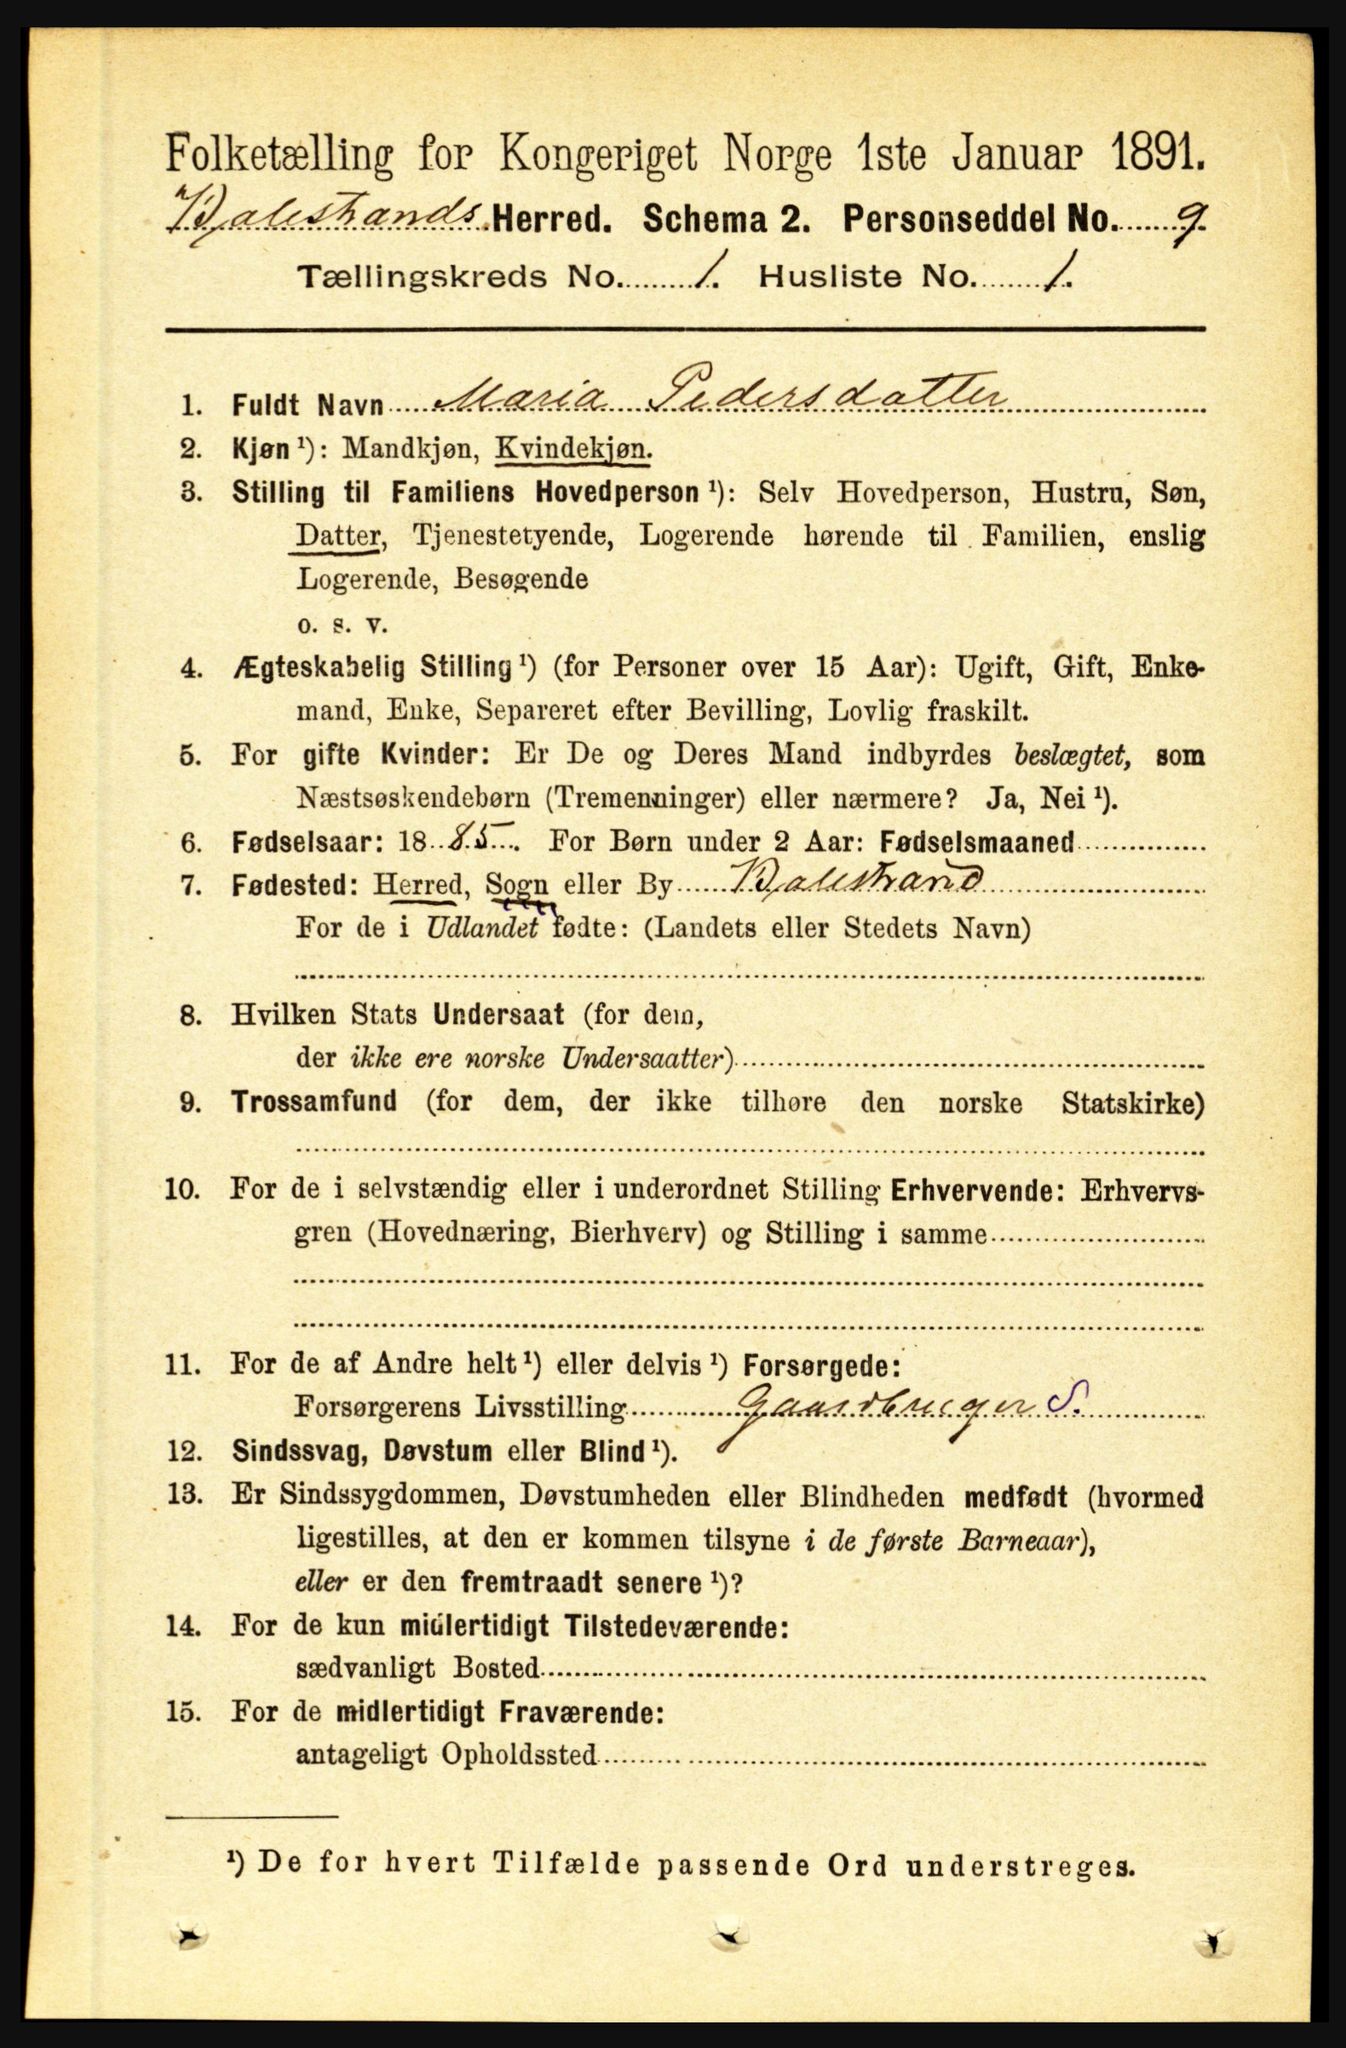 Folketælling for Kongeriget Norge 1ste Januar 1891.
Balestrands Herred. Schema 2. Personseddel No. 9.
Tællingskreds No. 1. Husliste No. 1.
1. Fuldt Navn Maria Pedersdatter
2. Kjøn ¹): Mandkjøn, Kvindekjøn.
3. Stilling til Familiens Hovedperson ¹): Selv Hovedperson, Hustru, Søn,
Datter, Tjenestetyende, Logerende hørende til Familien, enslig
Logerende, Besøgende
o. s. v.
4. Ægteskabelig Stilling ¹) (for Personer over 15 Aar): Ugift, Gift, Enke-
mand, Enke, Separeret efter Bevilling, Lovlig fraskilt.
5. For gifte Kvinder: Er De og Deres Mand indbyrdes beslægtet, som
Næstsøskendebørn (Tremenninger) eller nærmere? Ja, Nei ¹).
6. Fødselsaar: 1885. For Børn under 2 Aar: Fødselsmaaned
7. Fødested: Herred, Sogn eller By Balestrand
For de i Udlandet fødte: (Landets eller Stedets Navn)
8. Hvilken Stats Undersaat (for dem,
der ikke ere norske Undersaatter)
9. Trossamfund (for dem, der ikke tilhøre den norske Statskirke)
10. For de i selvstændig eller i underordnet Stilling Erhvervende: Erhvervs-
gren (Hovednæring, Bierhverv) og Stilling i samme
11. For de af Andre helt ¹) eller delvis ¹) Forsørgede:
Forsørgerens Livsstilling Gaardbruger S.
12. Sindssvag, Døvstum eller Blind ¹).
13. Er Sindssygdommen, Døvstumheden eller Blindheden medfødt (hvormed
ligestilles, at den er kommen tilsyne i de første Barneaar),
eller er den fremtraadt senere ¹)?
14. For de kun midlertidigt Tilstedeværende:
sædvanligt Bosted
15. For de midlertidigt Fraværende:
antageligt Opholdssted
¹) De for hvert Tilfælde passende Ord understreges.